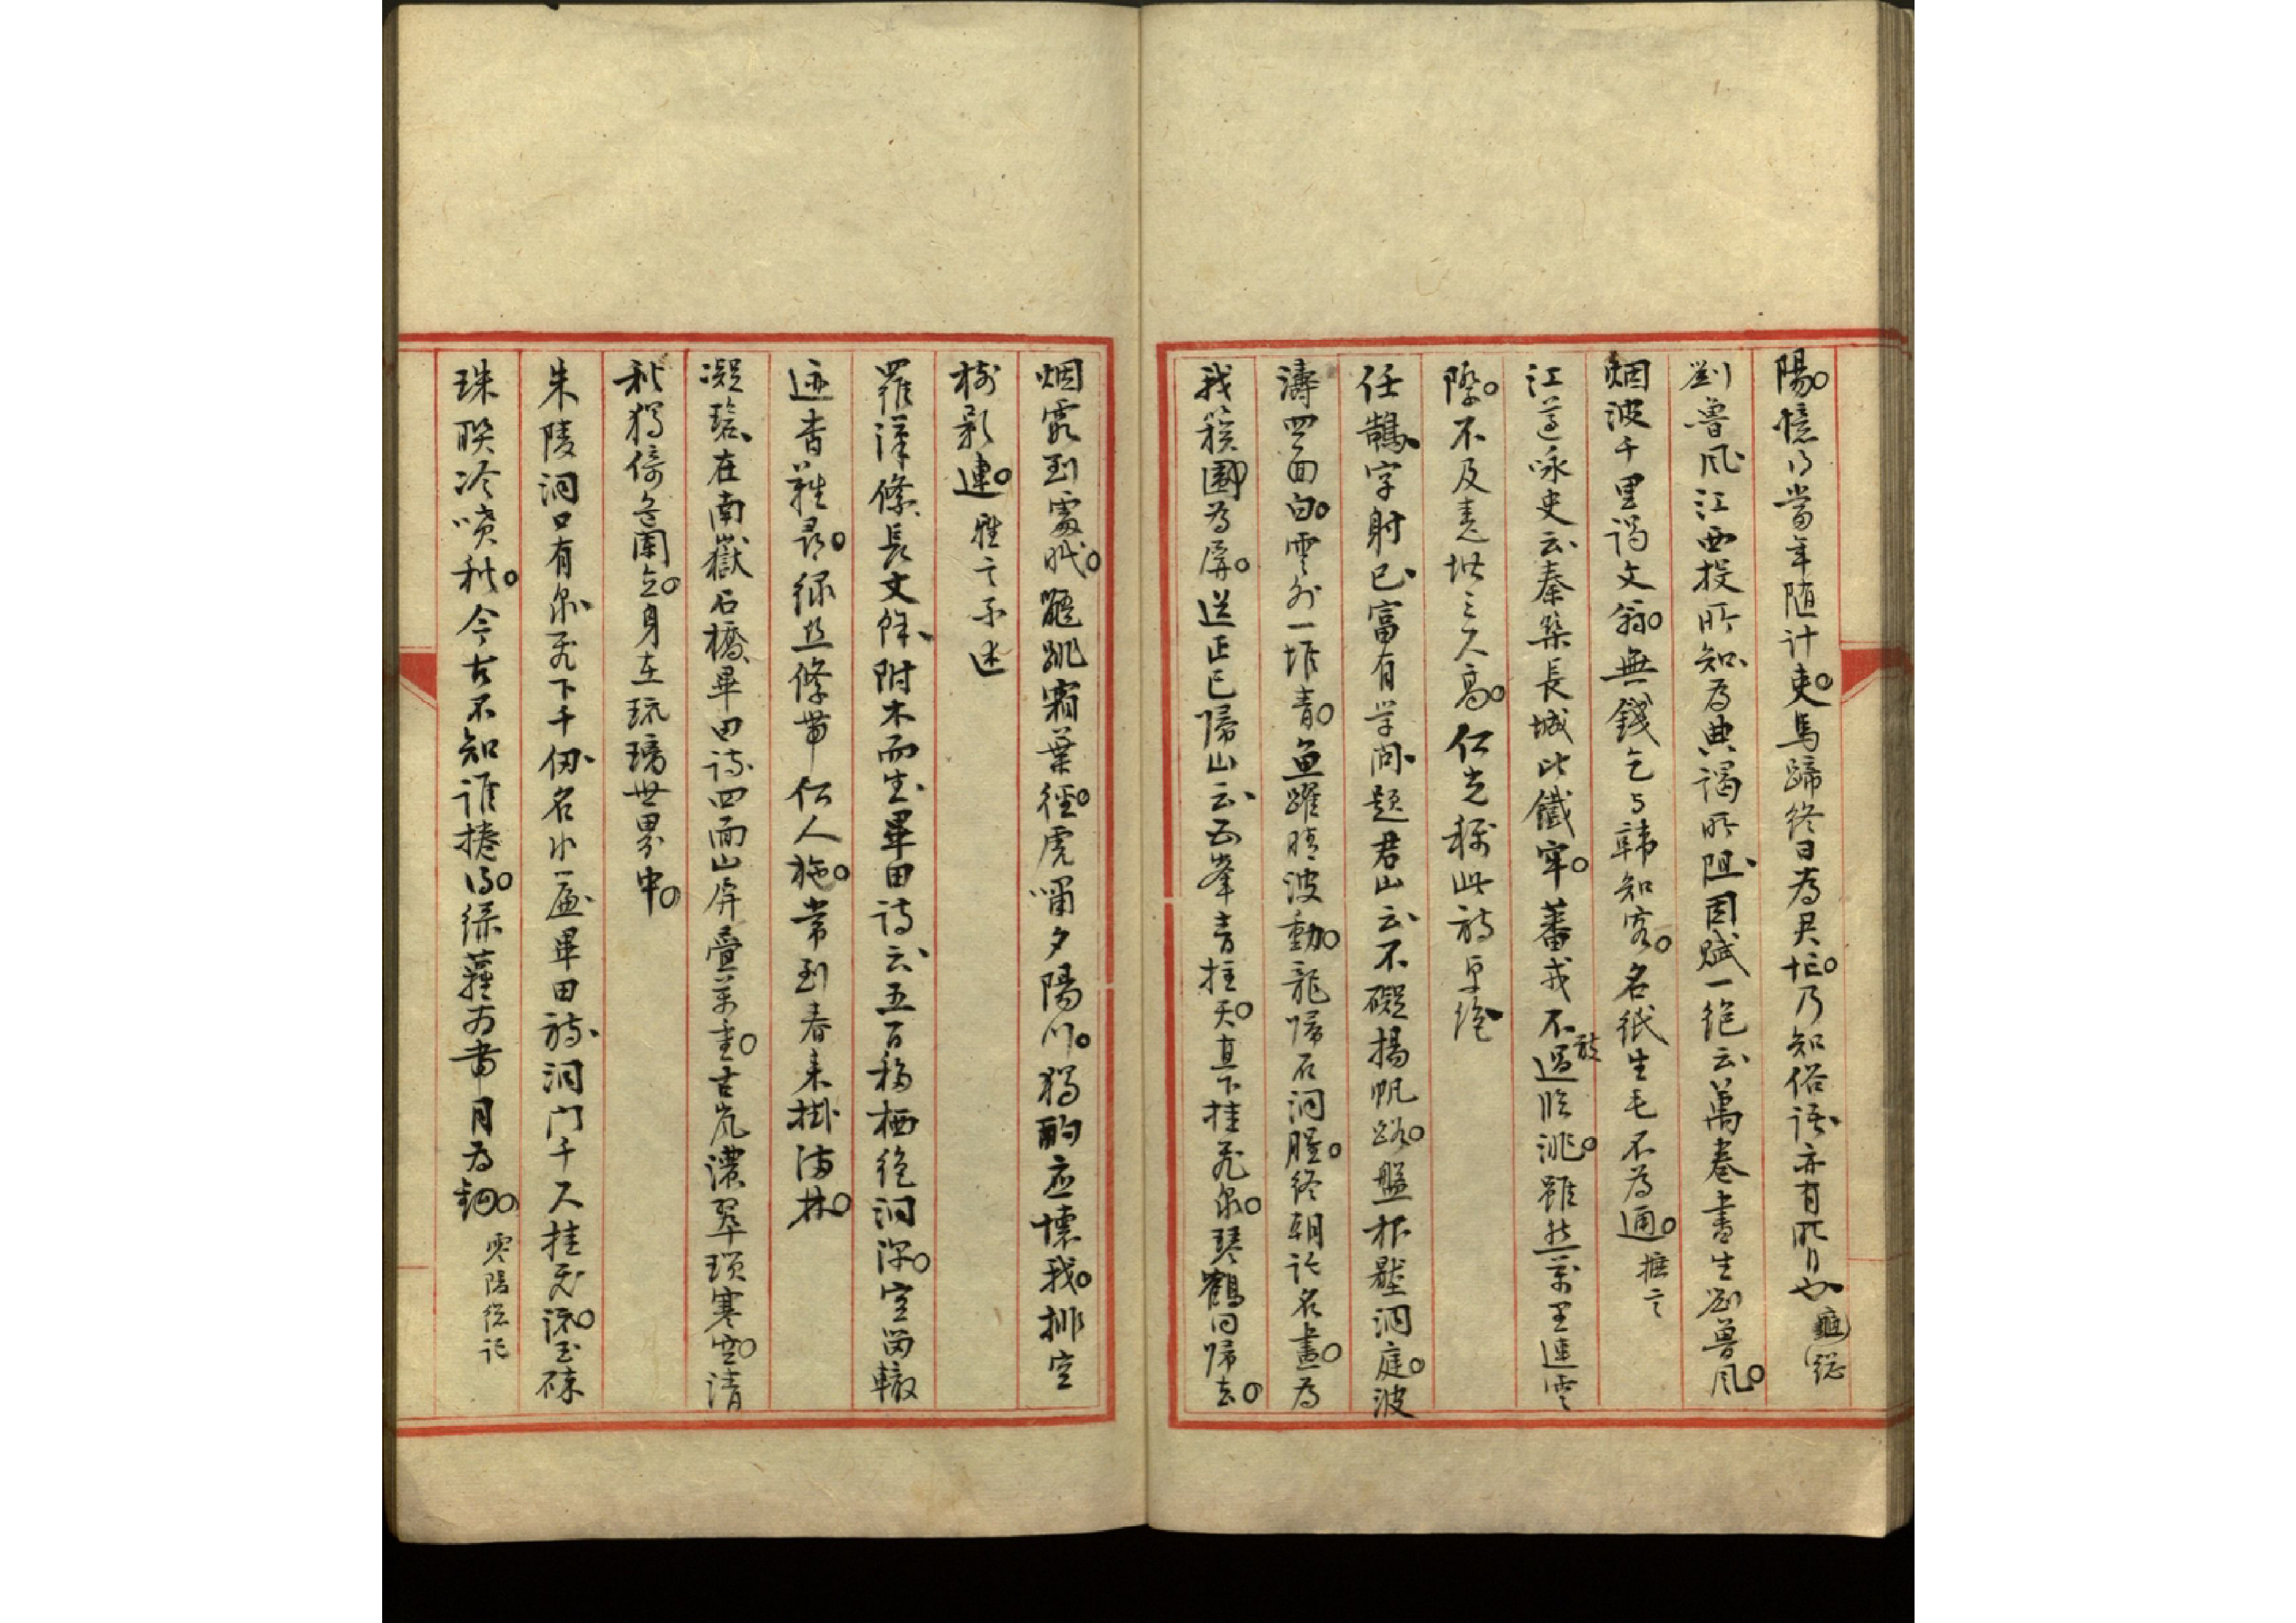 陽憶得當年隨計吏馬蹄終日為君忙乃知俗語亦有所自也 總
劉魯風江西投所知為典謁所阻因賦一絕云萬卷書生劉魯風
烟波千里謁文翁無錢乞与韓知客名紙生毛不為通 摭言
江遵咏史云秦築長城比鐵牢蕃戎不敢過臨洮雖然萬里連雲
際不及堯堦三尺高仁光稱此詩卓絕
任鵠字射己富有学問題君山云不礙揚帆路盤根壓洞庭波
濤四面白雲外一堆青魚躍晴波動龍歸石洞腥終朝託名畫為
我簇圖為屏送正已歸山云五峯青拄天直下挂飛泉琴鶴同歸去
烟霞到處眠龍跳霜葉徑虎嘯夕陽川獨酌應懷我排空
樹影連 雅言系述
羅漢絛長丈餘附木而生畢田詩云五百移栖絕洞深空留轍
迹杳難尋綠絲絛帶仙人施常到春來掛滿林
凝碧在南嶽石橋畢田詩四面山屏疊萬重古嵐濃翠瑣寒空清
秋獨倚危闌立身在琉璃世界中
朱陵洞口有泉飛下千仞名水簾畢田詩洞門千尺挂飛流玉碎
珠聯冷噴秋今古不知誰捲得綠蘿為帶月為鈎 零陵總記